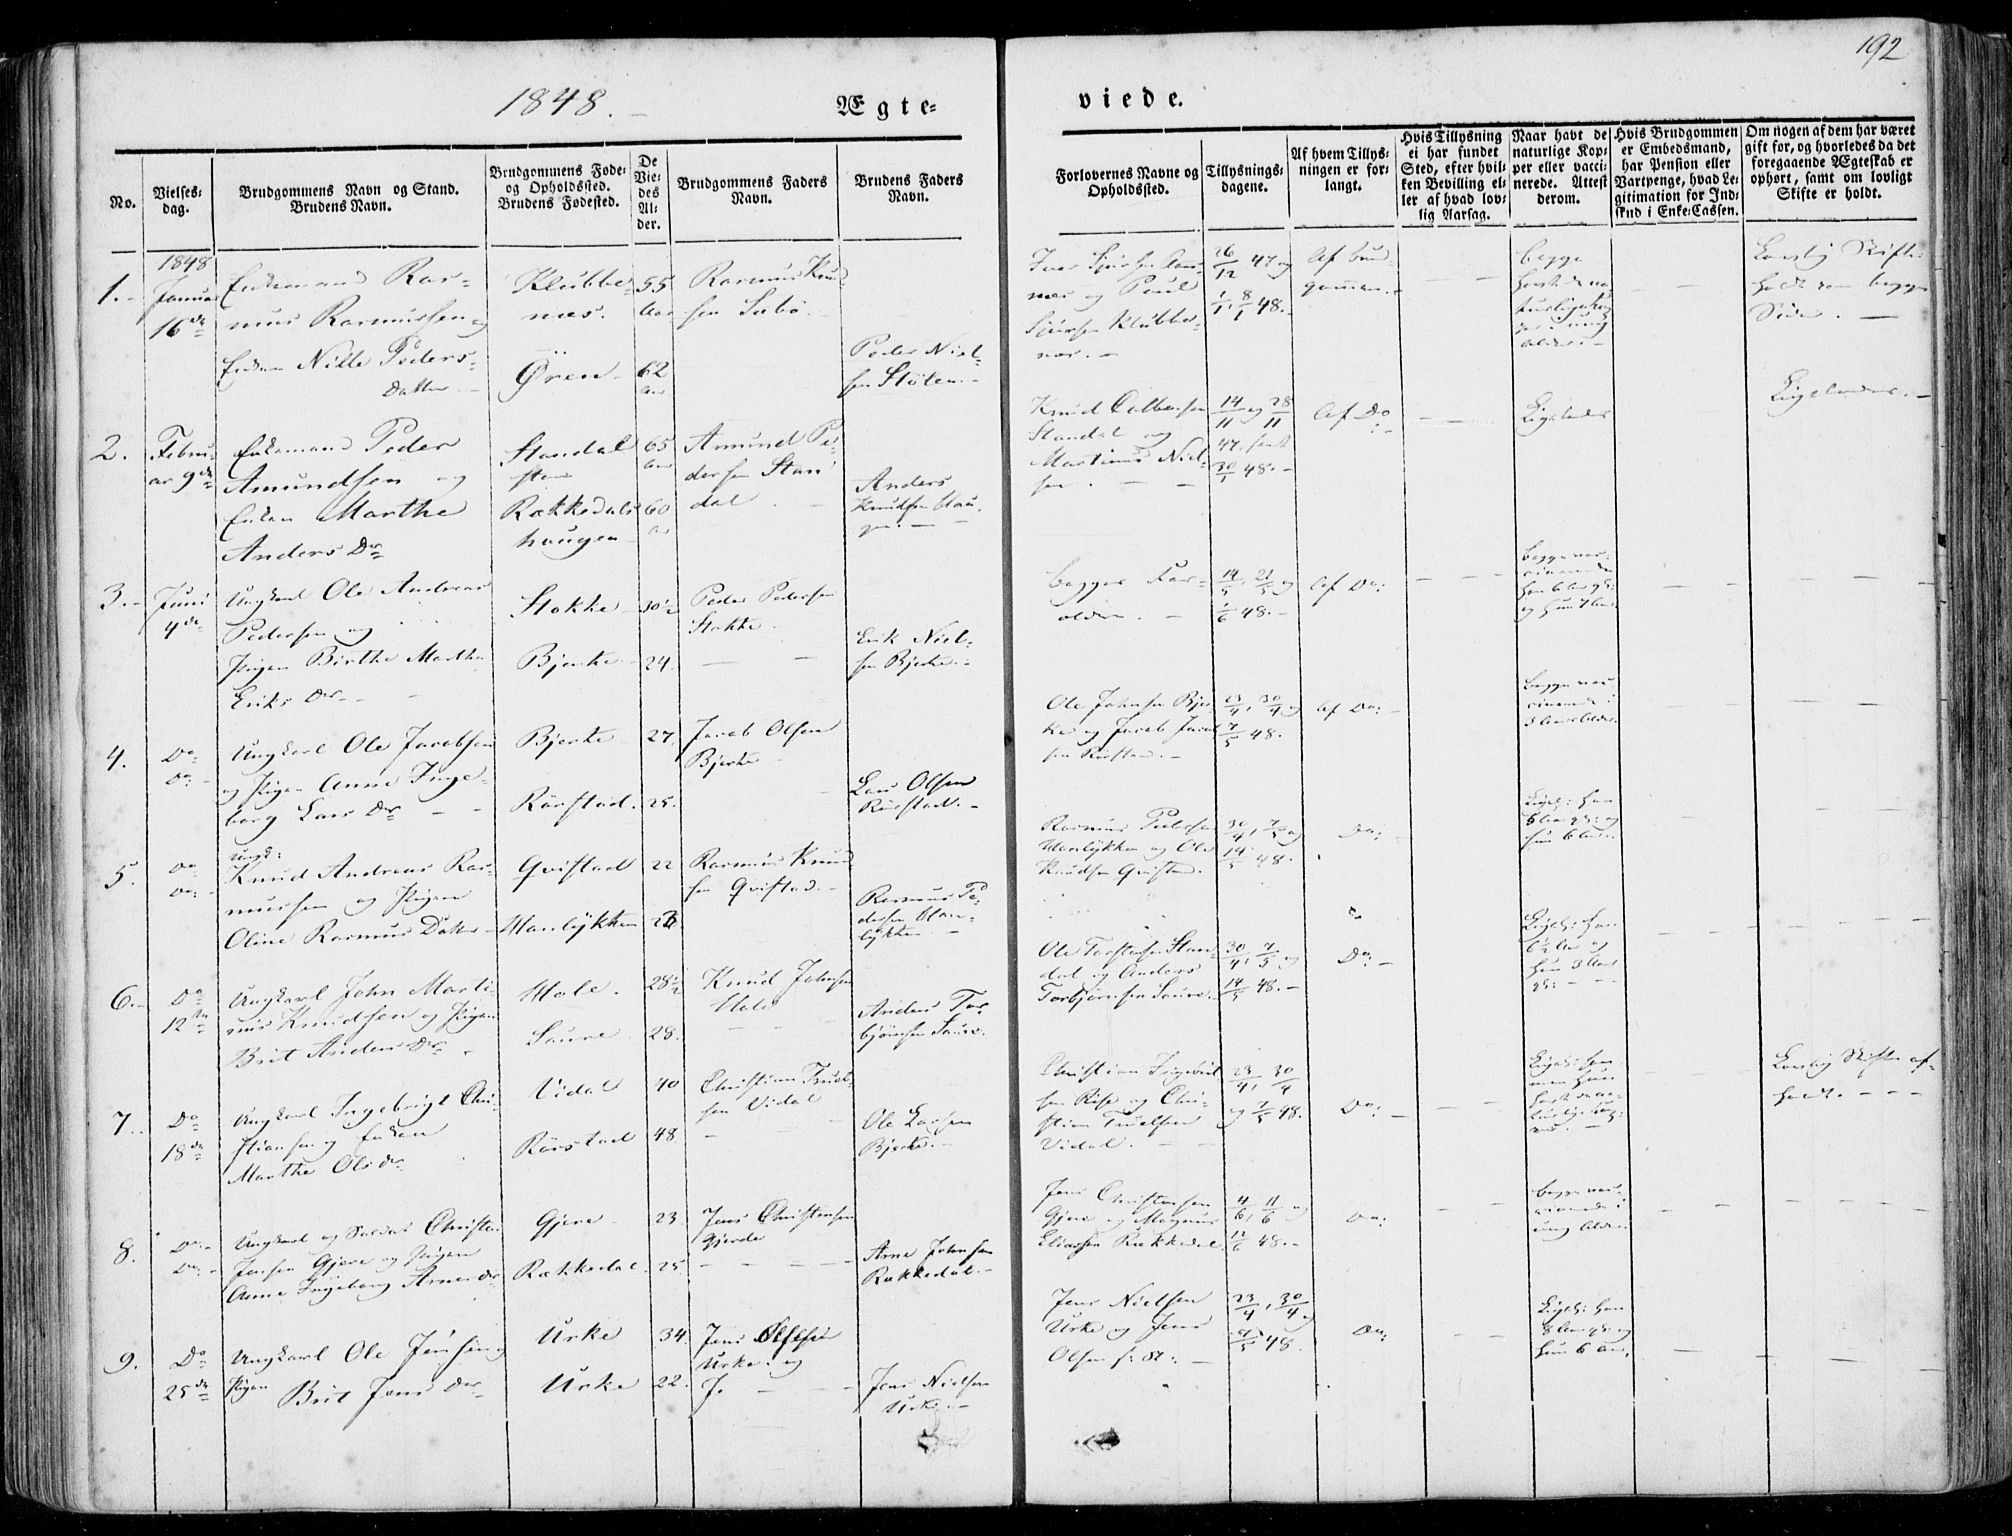 192
1848.
Ægte=
viede.
No.
Vielses=
dag.
Brudgommens Navn og Stand.
Brudens Navn.
Brudgommens Føde=
og Opholdssted.
Brudens Fødested.
De
Vie=
des
Al=
der.
Brudgommens Faders
Navn.
Brudens Faders
Navn.
Forlovernes Navne og
Opholdssted.
Tillysnings=
dagene.
Af hvem Tillys=
ningen er for=
langt.
Hvis Tillysning
ei har fundet
Sted, efter hvil=
ken Bevilling el=
ler af hvad lov=
lig Aarsag.
Naar havt de
naturlige Kop=
per eller vacci=
nerede. Attest
derom.
Hvis Brudgommen
er Embedsmand,
har Pension eller
Vartpenge, hvad Le=
gitimation for Ind=
skud i Enke=Cassen.
Om nogen af dem har været
gift før, og hvorledes da det
foregaaende Ægteskab er
ophørt, samt om lovligt
Skifte er holdt.
1.
1848
Januar
16de
Enkemand Ras=
mus Rasmussen og
Enken Nille Peders=
Datter
Klubbe=
næs.
Ören
55
Aar
62
Aar
Rasmus Knud
sen Sæbö.
Peder Niel=
sen Stölen.
Iver Sjursen
og Paul
Sjursen Klubbe=
næs.
26/12 47 og
1/1, 8/1 48.
Af Brud=
gommen.
begge
havt de na
turlige Kop
per i ung
Alder.
Lovlig Skifte
holdt paa begge
Sider.
2.
Febru=
ar 9de
Enkemand Peder
Amundsen og
Enken Marthe
Anders Dr
Standal
Rækkedals
haugen
65
Aar
60
Aar
Amund Pe
dersen Stan
dal
Anders
Knudsen
Knud
Standal og
Martinus Niel=
sen.
14/11 og 28/11
47. samt
30/1 48.
Af Do
Ligeledes
Ligeledes.
3.
Juni
4de
Ungkarl Ole Andreas
Pedersen og
Pigen Birthe Marthe
Eriks Dr
Stokke
Bjerke
30 1/2
24.
Peder Pedersen
Stokke.
Erik Niel=
sen Bjerke.
begges For=
ældre.
14/5, 21/5 og
1/6 48.
Af Do:
begge vac=
cinerede
han 6 Aar gl:
og hun 7 Aar
4.
Do
Do
Ungkarl Ole Jacobsen
og Pigen Anne Inge=
borg Lars Dr
Bjerke
Rörstad.
27.
25.
Jacob Olsen
Bjerke
Lars Olsen
Rörstad.
Ole Johnsen Bjer
ke og Jacob Jacob
sen Rörstad.
23/4, 30/4 og
7/5 48.
Af Do:
begge vac
cinerede i
5.
Do
Do
Ungk:
Knud Andreas Ras=
mussen og Pigen
Oline Rasmus Datter
Qvistad
Manlykken
22
23
Rasmus Knud
sen Qvistad.
Rasmus Pe=
dersen Man=
lykken
Rasmus Pedersen
Manlykken og Ole
Knudsen Qvistad.
30/4, 7/5 og
14/5 48.
Do:
Ligel: han
5 Aar gl: og
hun 6 Aar.
6.
Do
12te
Ungkarl John Marti=
nus Knudsen og Pigen
Brit Anders Dr
Hole.
Saure
28 1/2
28.
Knud Johnsen
Hole
Anders Tor
björnsen Saure.
Ole Torstensen Stan
dal og Anders
Torbjörnsen Saure.
30/4, 7/5 og
14/5 48.
Do:
Ligel: han
6 1/2 Aar og
hun 3 Aar
gl:
7.
Do
18de
Ungkarl Ingebrigt Chri=
stiansen og Enken
Marthe Ols Dr
Vidal
Rörstad
40
48
Christian Truel
sen Vidal
Ole Larsen
Bjerke.
Christian Ingebrigt
sen Rise og Chri=
stian Truelsen
Vidal.
23/4, 30/4
og 7/5 48.
Do:
Ligel: han
men hun
havt de na=
turlige Kop=
per.
Lovlig Skifte af=
holdt.
8.
Do
Do
Ungkarl og Soldat Christen
Jensen Gjere og Pigen
Anne Ingeborg Arne Dr
Gjere
Rækkedal
23
25
Jens Christensen
Gjerde
Arne Johnsen
Rækkedal.
Jens Christensen
Gjere og Magnus
Eliassen Rækkedal.
4/6, 11/6 og
12/6 48.
Do:
begge vac=
cinerede i
ung Alder.
9.
Do
25de
Ungkarl Ole Jensen og
Pigen Brit Jens Dr
Urke
Urke
34
22.
Jens Olsen
Urke. og
J.
Jens Nielsen
Urke.
Jens Nielsen
Urke og Jens
Olsen
23/4, 30/4 og
7/5 48.
Do:
Ligel: han
8 Aar gl: og
hun 6 Aar.